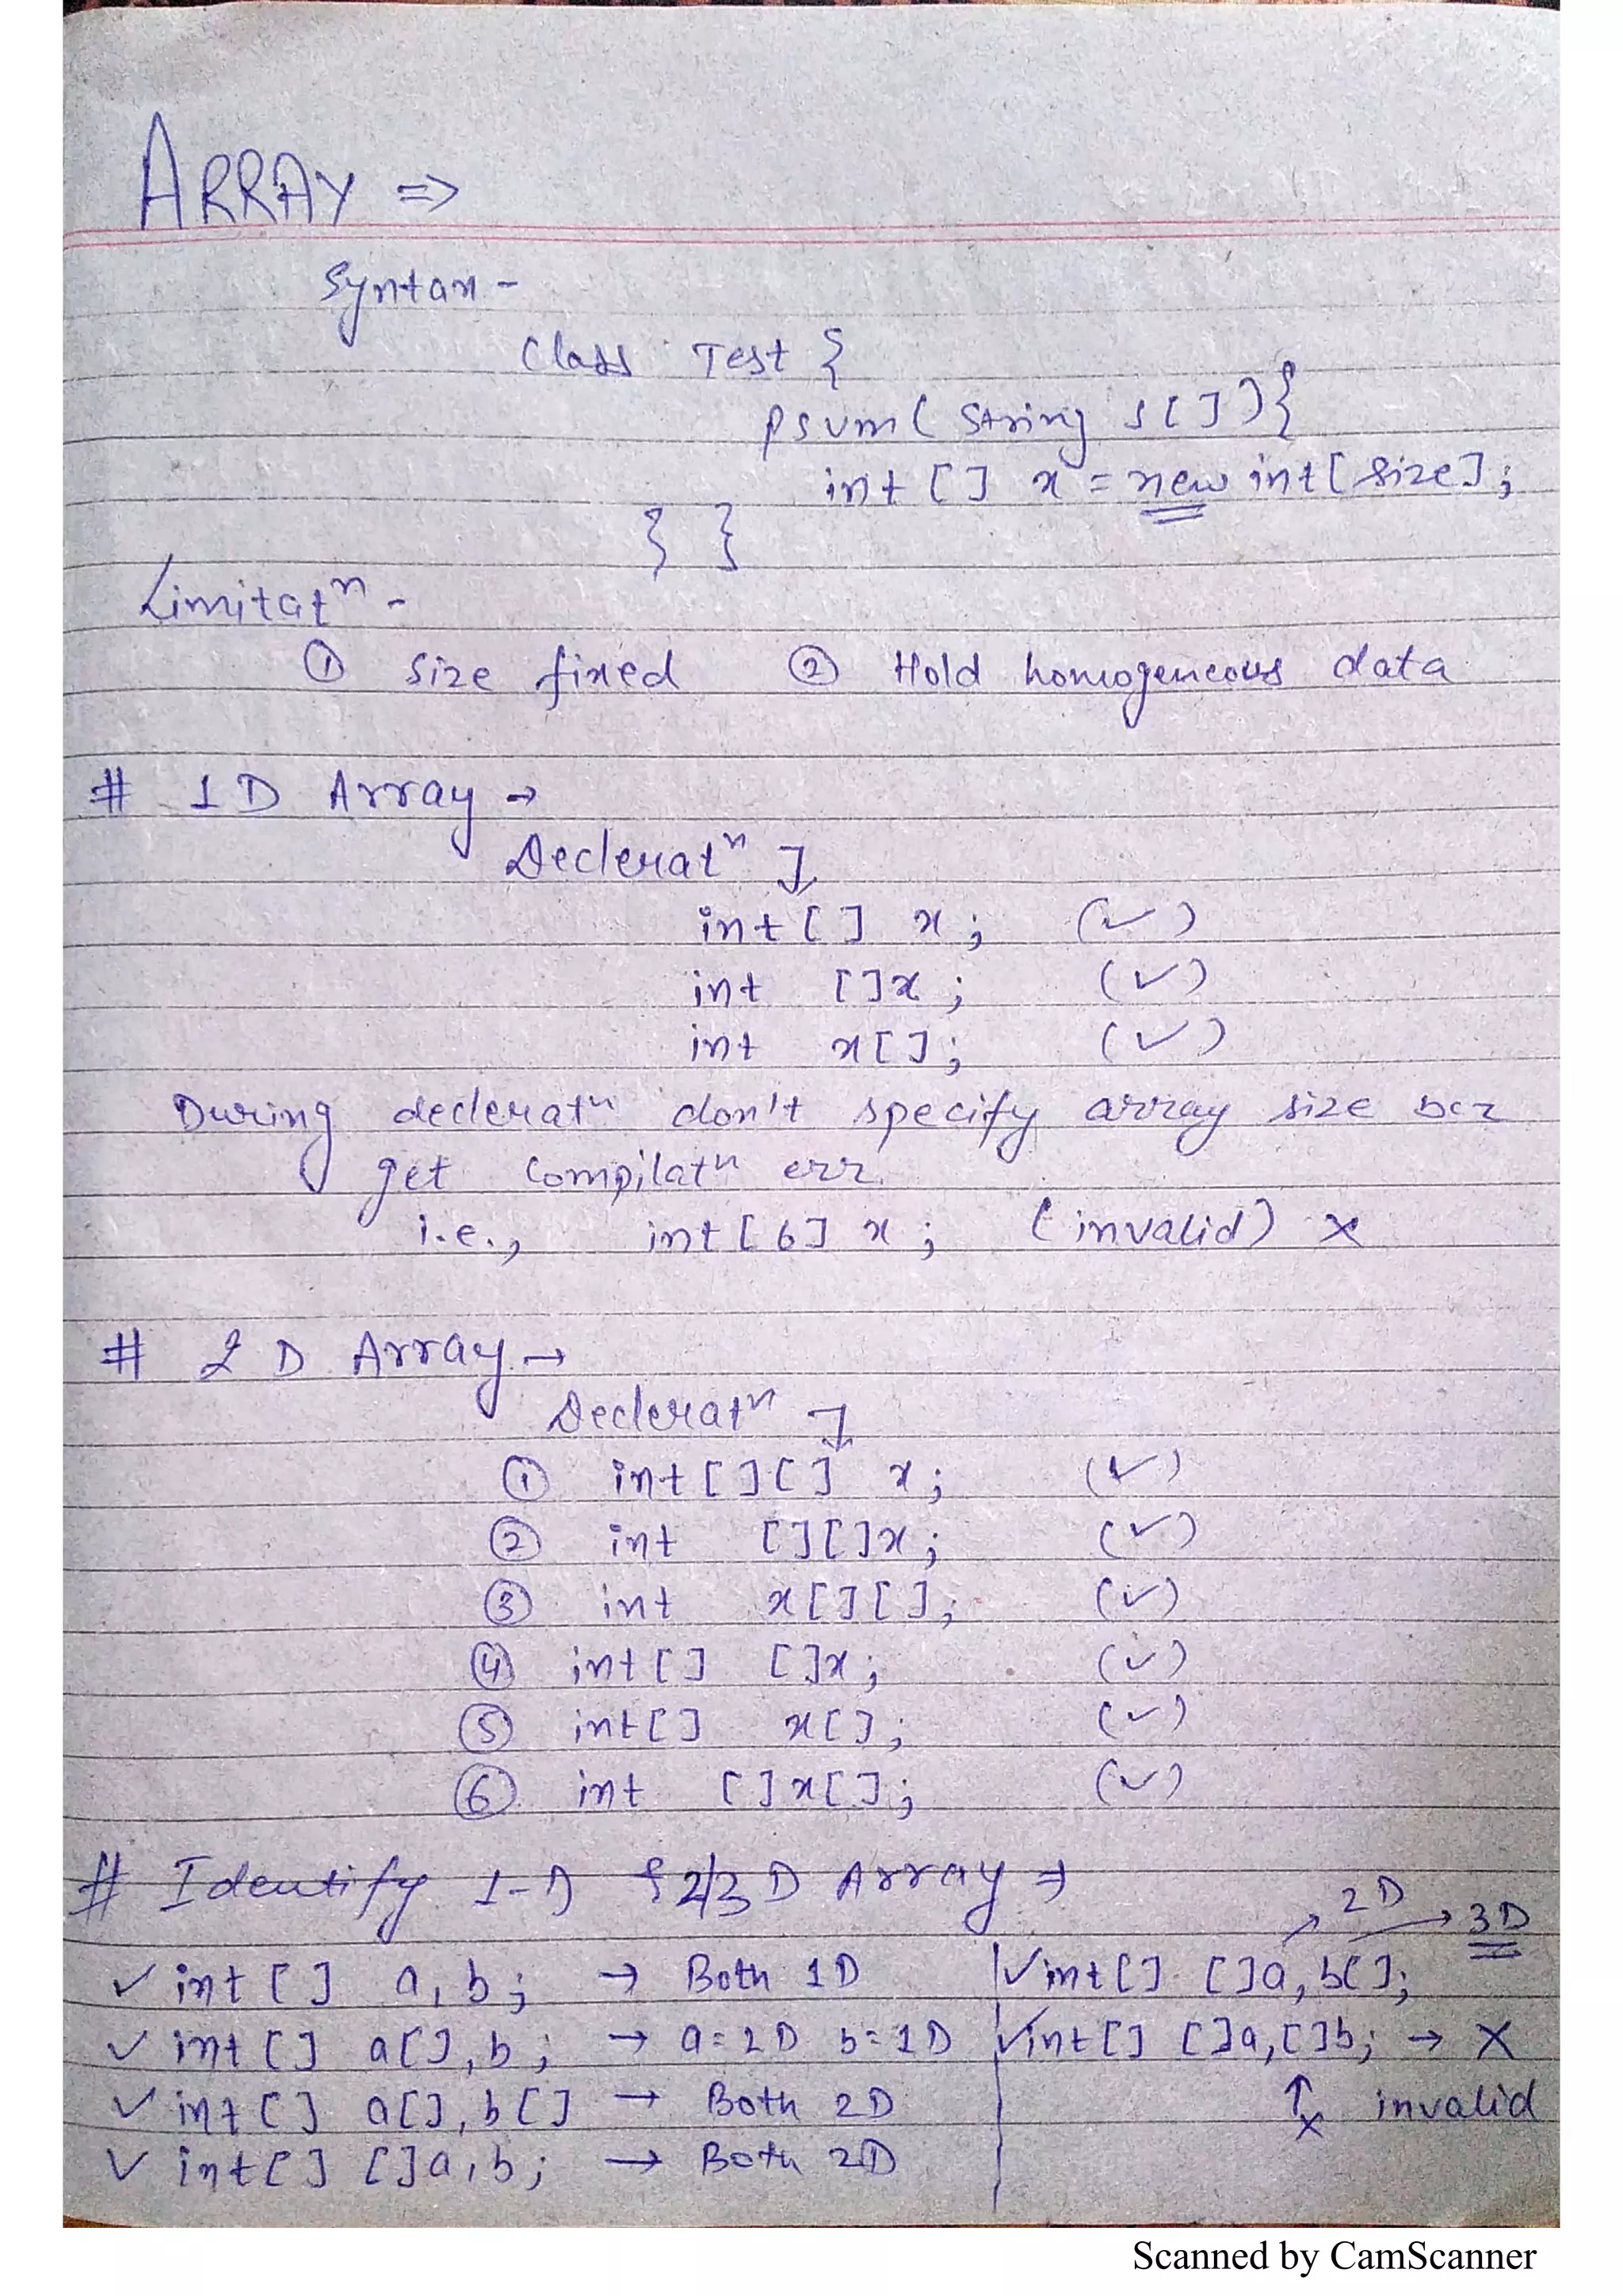 ARRAY =>
Syntax -
Class Test {
psvm( String s[]){
int [] x = new int[size];
} }
Limitatⁿ -
① size fixed ② Hold homogeneous data
# 1D Array →
Decleratⁿ ↴
int [] x ; (✓)
int []x ; (✓)
int x[]; (✓)
During decleratⁿ don't specify array size bcz
get Compilatⁿ err.
i.e., int [6] x ; (invalid) ×
# 2D Array →
Decleratⁿ ↴
① int[][] x ; (✓)
② int [][]x ; (✓)
③ int x[][]; (✓)
④ int[] []x ; (✓)
⑤ int[] x[]; (✓)
⑥ int []x[]; (✓)
# Identify 1-D & 2/3D Array ⇒
✓ int [] a, b; → Both 1D
✓ int [] a[], b ; → a=2D b=1D
✓ int [] a[], b[] → Both 2D
✓ int[] []a, b; → Both 2D
↗ 2D → 3D
✓ int[] []a, b[];
✓ int[] []a, []b; → X
↑ x invalid
Scanned by CamScanner